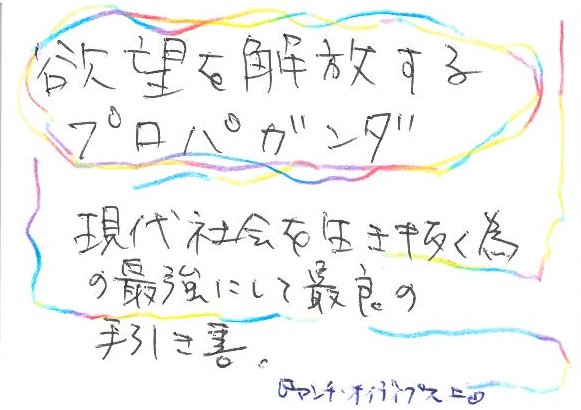 欲望を解放する
プロパガンダ
現代社会を生き抜く為
の最強にして最良の
手引き書。
アンチ・オイディプス上